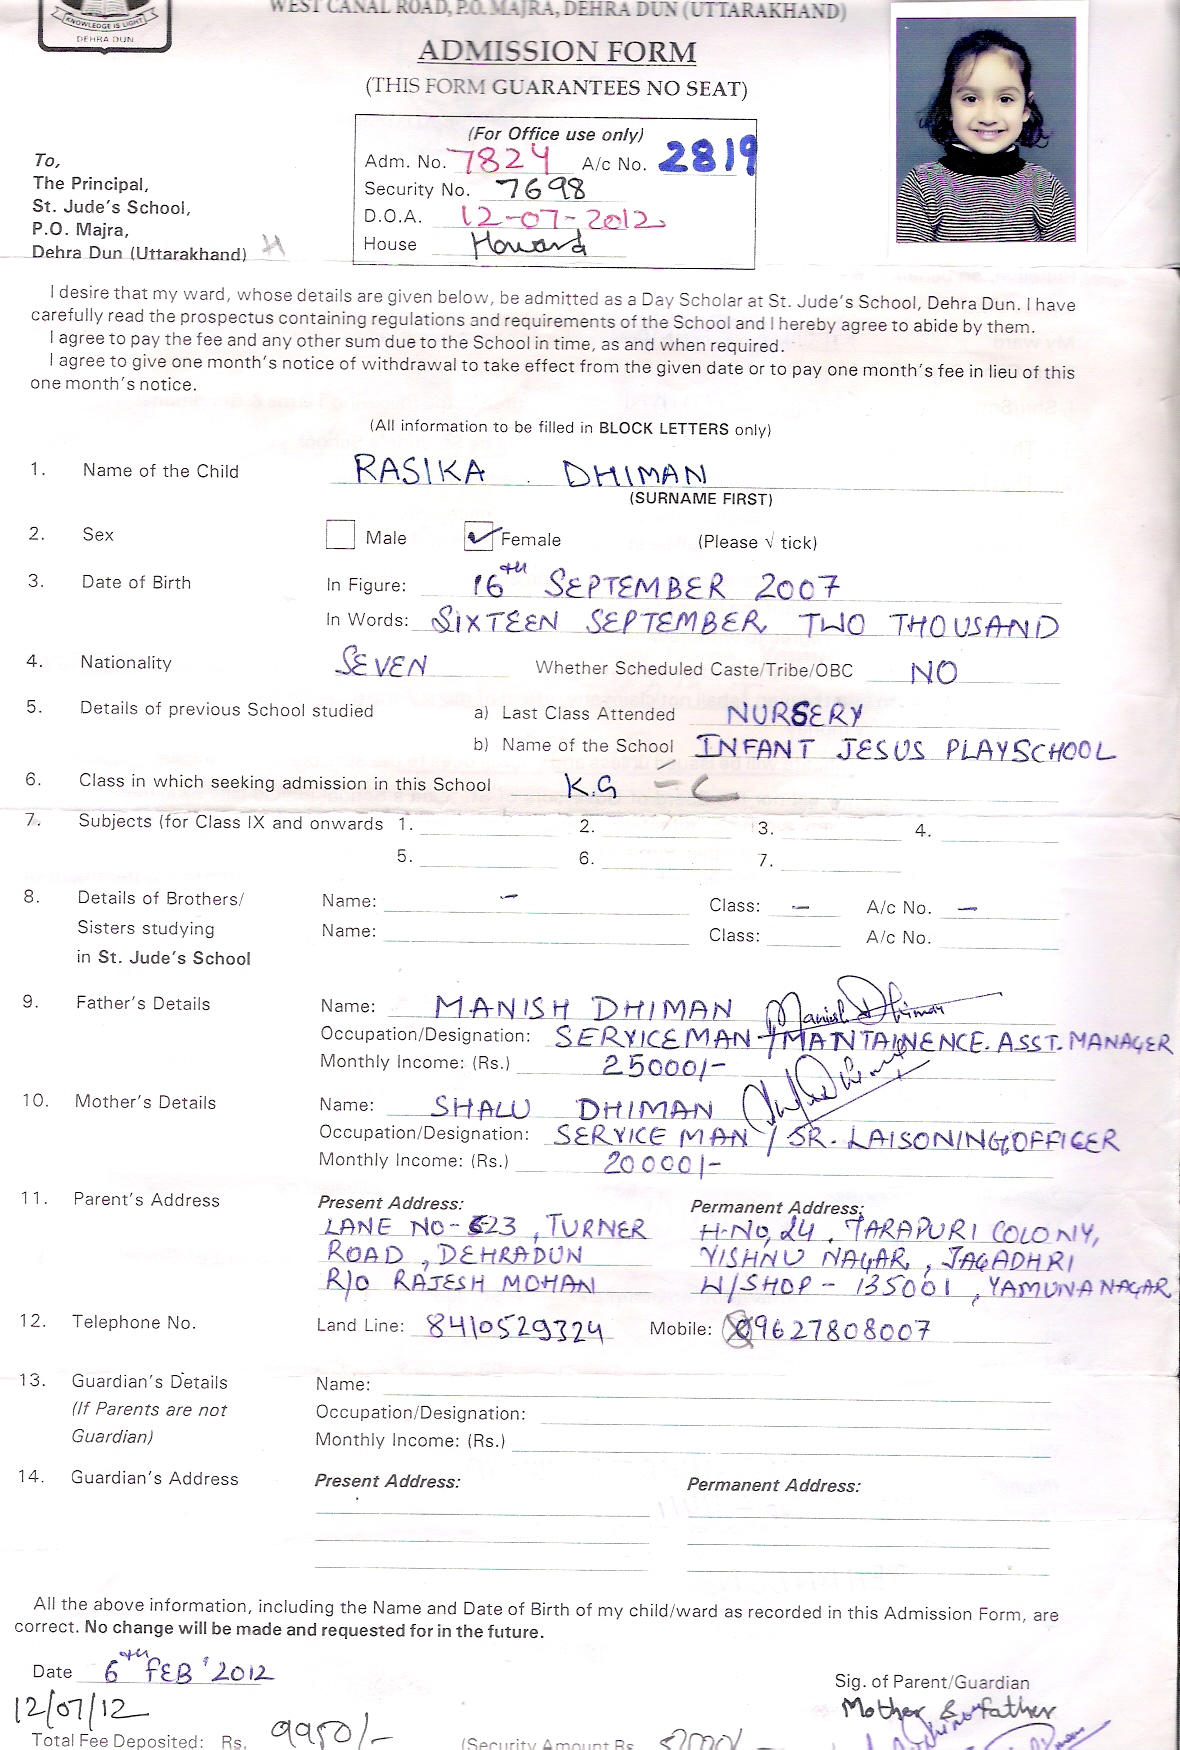 KNOWLEDGE IS LIGHT
DEHRA DUN
WEST CANAL ROAD, P.O. MAJRA, DEHRA DUN (UTTARAKHAND)
ADMISSION FORM
(THIS FORM GUARANTEES NO SEAT)
(For Office use only)
Adm. No. 7824 A/c No. 2819
Security No. 7698
D.O.A. 12-07-2012
House Howard
To,
The Principal,
St. Jude's School,
P.O. Majra,
Dehra Dun (Uttarakhand) H
I desire that my ward, whose details are given below, be admitted as a Day Scholar at St. Jude's School, Dehra Dun. I have
carefully read the prospectus containing regulations and requirements of the School and I hereby agree to abide by them.
I agree to pay the fee and any other sum due to the School in time, as and when required.
I agree to give one month's notice of withdrawal to take effect from the given date or to pay one month's fee in lieu of this
one month's notice.
(All information to be filled in BLOCK LETTERS only)
1. Name of the Child RASIKA DHIMAN
(SURNAME FIRST)
2. Sex Male Female (Please √ tick)
3. Date of Birth In Figure: 16th SEPTEMBER 2007
In Words: SIXTEEN SEPTEMBER TWO THOUSAND
4. Nationality SEVEN Whether Scheduled Caste/Tribe/OBC NO
5. Details of previous School studied a) Last Class Attended NURSERY
b) Name of the School INFANT JESUS PLAYSCHOOL
6. Class in which seeking admission in this School K.G - C
7. Subjects (for Class IX and onwards 1. 2. 3. 4.
5. 6. 7.
8. Details of Brothers/ Name: - Class: - A/c No. -
Sisters studying Name: Class: A/c No.
in St. Jude's School
9. Father's Details Name: MANISH DHIMAN Manish Dhiman
Occupation/Designation: SERVICEMAN / MAINTAINENCE. ASST. MANAGER
Monthly Income: (Rs.) 25000/-
10. Mother's Details Name: SHALU DHIMAN
Occupation/Designation: SERVICE MAN / SR. LAISONING OFFICER
Monthly Income: (Rs.) 20000/-
11. Parent's Address Present Address: Permanent Address:
LANE NO-523, TURNER H.NO, 24, TARAPURI COLONY,
ROAD, DEHRADUN VISHNU NAGAR, JAGADHRI
R/O RAJESH MOHAN W/SHOP - 135001, YAMUNA NAGAR
12. Telephone No. Land Line: 8410529324 Mobile: 09627808007
13. Guardian's Details Name:
(If Parents are not Occupation/Designation:
Guardian) Monthly Income: (Rs.)
14. Guardian's Address Present Address: Permanent Address:
All the above information, including the Name and Date of Birth of my child/ward as recorded in this Admission Form, are
correct. No change will be made and requested for in the future.
Date 6th FEB '2012
Sig. of Parent/Guardian
12/07/12 Mother & father
Total Fee Deposited: Rs. 9950/- (Security Amount Rs